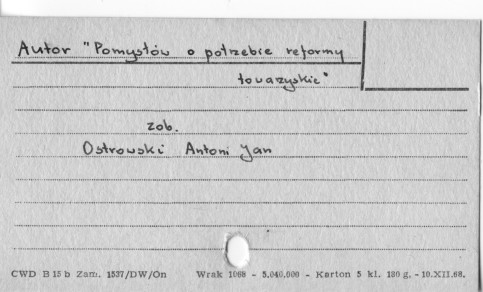 Autor "Pomysłów o potrzebie reformy
towarzyskie"
zob.
Ostrowski Antoni Jan
CWD B 15 b Zam. 1537/DW/On Wrak 1068 - 5.040.000 - Karton 5 kl. 180 g. - 10.XII.68.